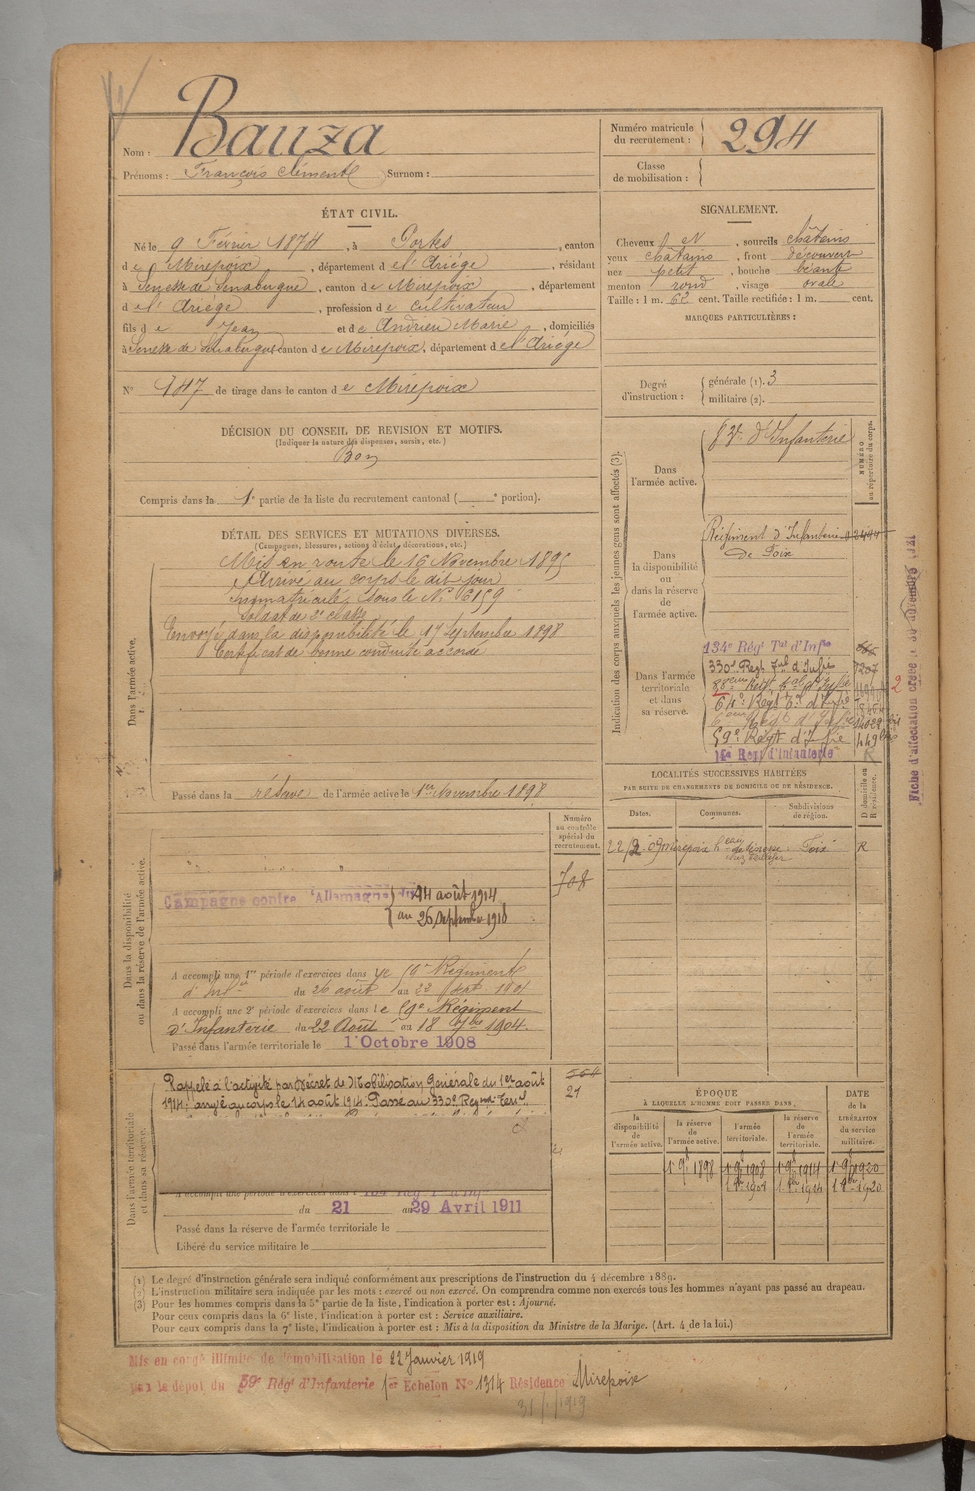 Nom : Bauza
Prénoms : François Clément Surnom :
Numéro matricule du recrutement : 294
Classe de mobilisation :
ÉTAT CIVIL.
Né le 9 Février 1874, à Portes, canton
de Mirepoix, département de l'Ariége, résidant
à Senesse de Senabugue, canton de Mirepoix, département
de l'Ariége, profession de cultivateur
fils de Jean et de Andrieu Marie, domiciliés
à Senesse de Senabugue canton de Mirepoix, département de l'Ariége
N° 147 de tirage dans le canton de Mirepoix
DÉCISION DU CONSEIL DE REVISION ET MOTIFS.
(Indiquer la nature des dispenses, sursis, etc.)
Bon
Compris dans la 1e partie de la liste du recrutement cantonal ( e portion).
SIGNALEMENT.
Cheveux et, sourcils châtains
yeux châtains, front découvert
nez petit, bouche béante
menton rond, visage ovale
Taille : 1 m. 62 cent. Taille rectifiée : 1 m. cent.
MARQUES PARTICULIÈRES :
Degré d'instruction : générale (1). 3
militaire (2).
DÉTAIL DES SERVICES ET MUTATIONS DIVERSES.
(Campagnes, blessures, actions d'éclat, décorations, etc.)
Dans l'armée active.
Mis en route le 16 Novembre 1895
Arrivé au corps le dit jour
Immatriculé sous le N° 6159
Soldat de 2e classe
Envoyé dans la disponibilité le 17 Septembre 1898
Certificat de bonne conduite accordé
Passé dans la réserve de l'armée active le 1er Novembre 1898
Indication des corps auxquels les jeunes gens sont affectés (3).
NUMÉRO au répertoire du corps.
Dans l'armée active.
d'Infanterie
Dans la disponibilité ou dans la réserve de l'armée active.
Régiment d'Infanterie
de Foix
Dans l'armée territoriale et dans sa réserve.
134e Rég' Tal d'Infie
330e Regt Tal d'Infie 7207
64e Régt d'Infie
59e Régt d'Infie 449
Regt d'Infanterie
Fiche d'affectation créée
LOCALITÉS SUCCESSIVES HABITÉES
PAR SUITE DE CHANGEMENTS DE DOMICILE OU DE RÉSIDENCE.
Dates. Communes. Subdivisions de région. D domicile ou R résidence.
Mirepoix Foix R
Dans la disponibilité ou dans la réserve de l'armée active.
Numéro au contrôle spécial du recrutement.
708
Campagne contre l'Allemagne du 14 août 1914
au 26 Septembre 1918
A accompli une 1re période d'exercices dans
du 26 août au 22 Sept 1901
A accompli une 2e période d'exercices dans le 59e Régiment
d'Infanterie du 22 Août au 18 7bre 1904.
Passé dans l'armée territoriale le 1 Octobre 1908
Dans l'armée territoriale et dans sa réserve.
Rappelé à l'activité par Décret de Mobilisation Générale du 1er août
1914. arrivé au corps le 14 août 1914. Passé au 330e Regmt Terral
21
du 21 au 29 Avril 1911
Passé dans la réserve de l'armée territoriale le
Libéré du service militaire le
ÉPOQUE
À LAQUELLE L'HOMME DOIT PASSER DANS
la disponibilité de l'armée active. la réserve de l'armée active. l'armée territoriale. la réserve de l'armée territoriale. DATE de la LIBÉRATION du service militaire.
1898 1908 1914 1920
(1) Le degré d'instruction générale sera indiqué conformément aux prescriptions de l'instruction du 4 décembre 1889.
(2) L'instruction militaire sera indiquée par les mots : exercé ou non exercé. On comprendra comme non exercés tous les hommes n'ayant pas passé au drapeau.
(3) Pour les hommes compris dans la 5e partie de la liste, l'indication à porter est : Ajourné.
Pour ceux compris dans la 6e liste, l'indication à porter est : Service auxiliaire.
Pour ceux compris dans la 7e liste, l'indication à porter est : Mis à la disposition du Ministre de la Marine. (Art. 4 de la loi.)
Mis en congé illimité de démobilisation le 22 Janvier 1919
par le dépôt du 59e Rég' d'Infanterie 1er Echelon N° 1314 Résidence Mirepoix
31/1/1919